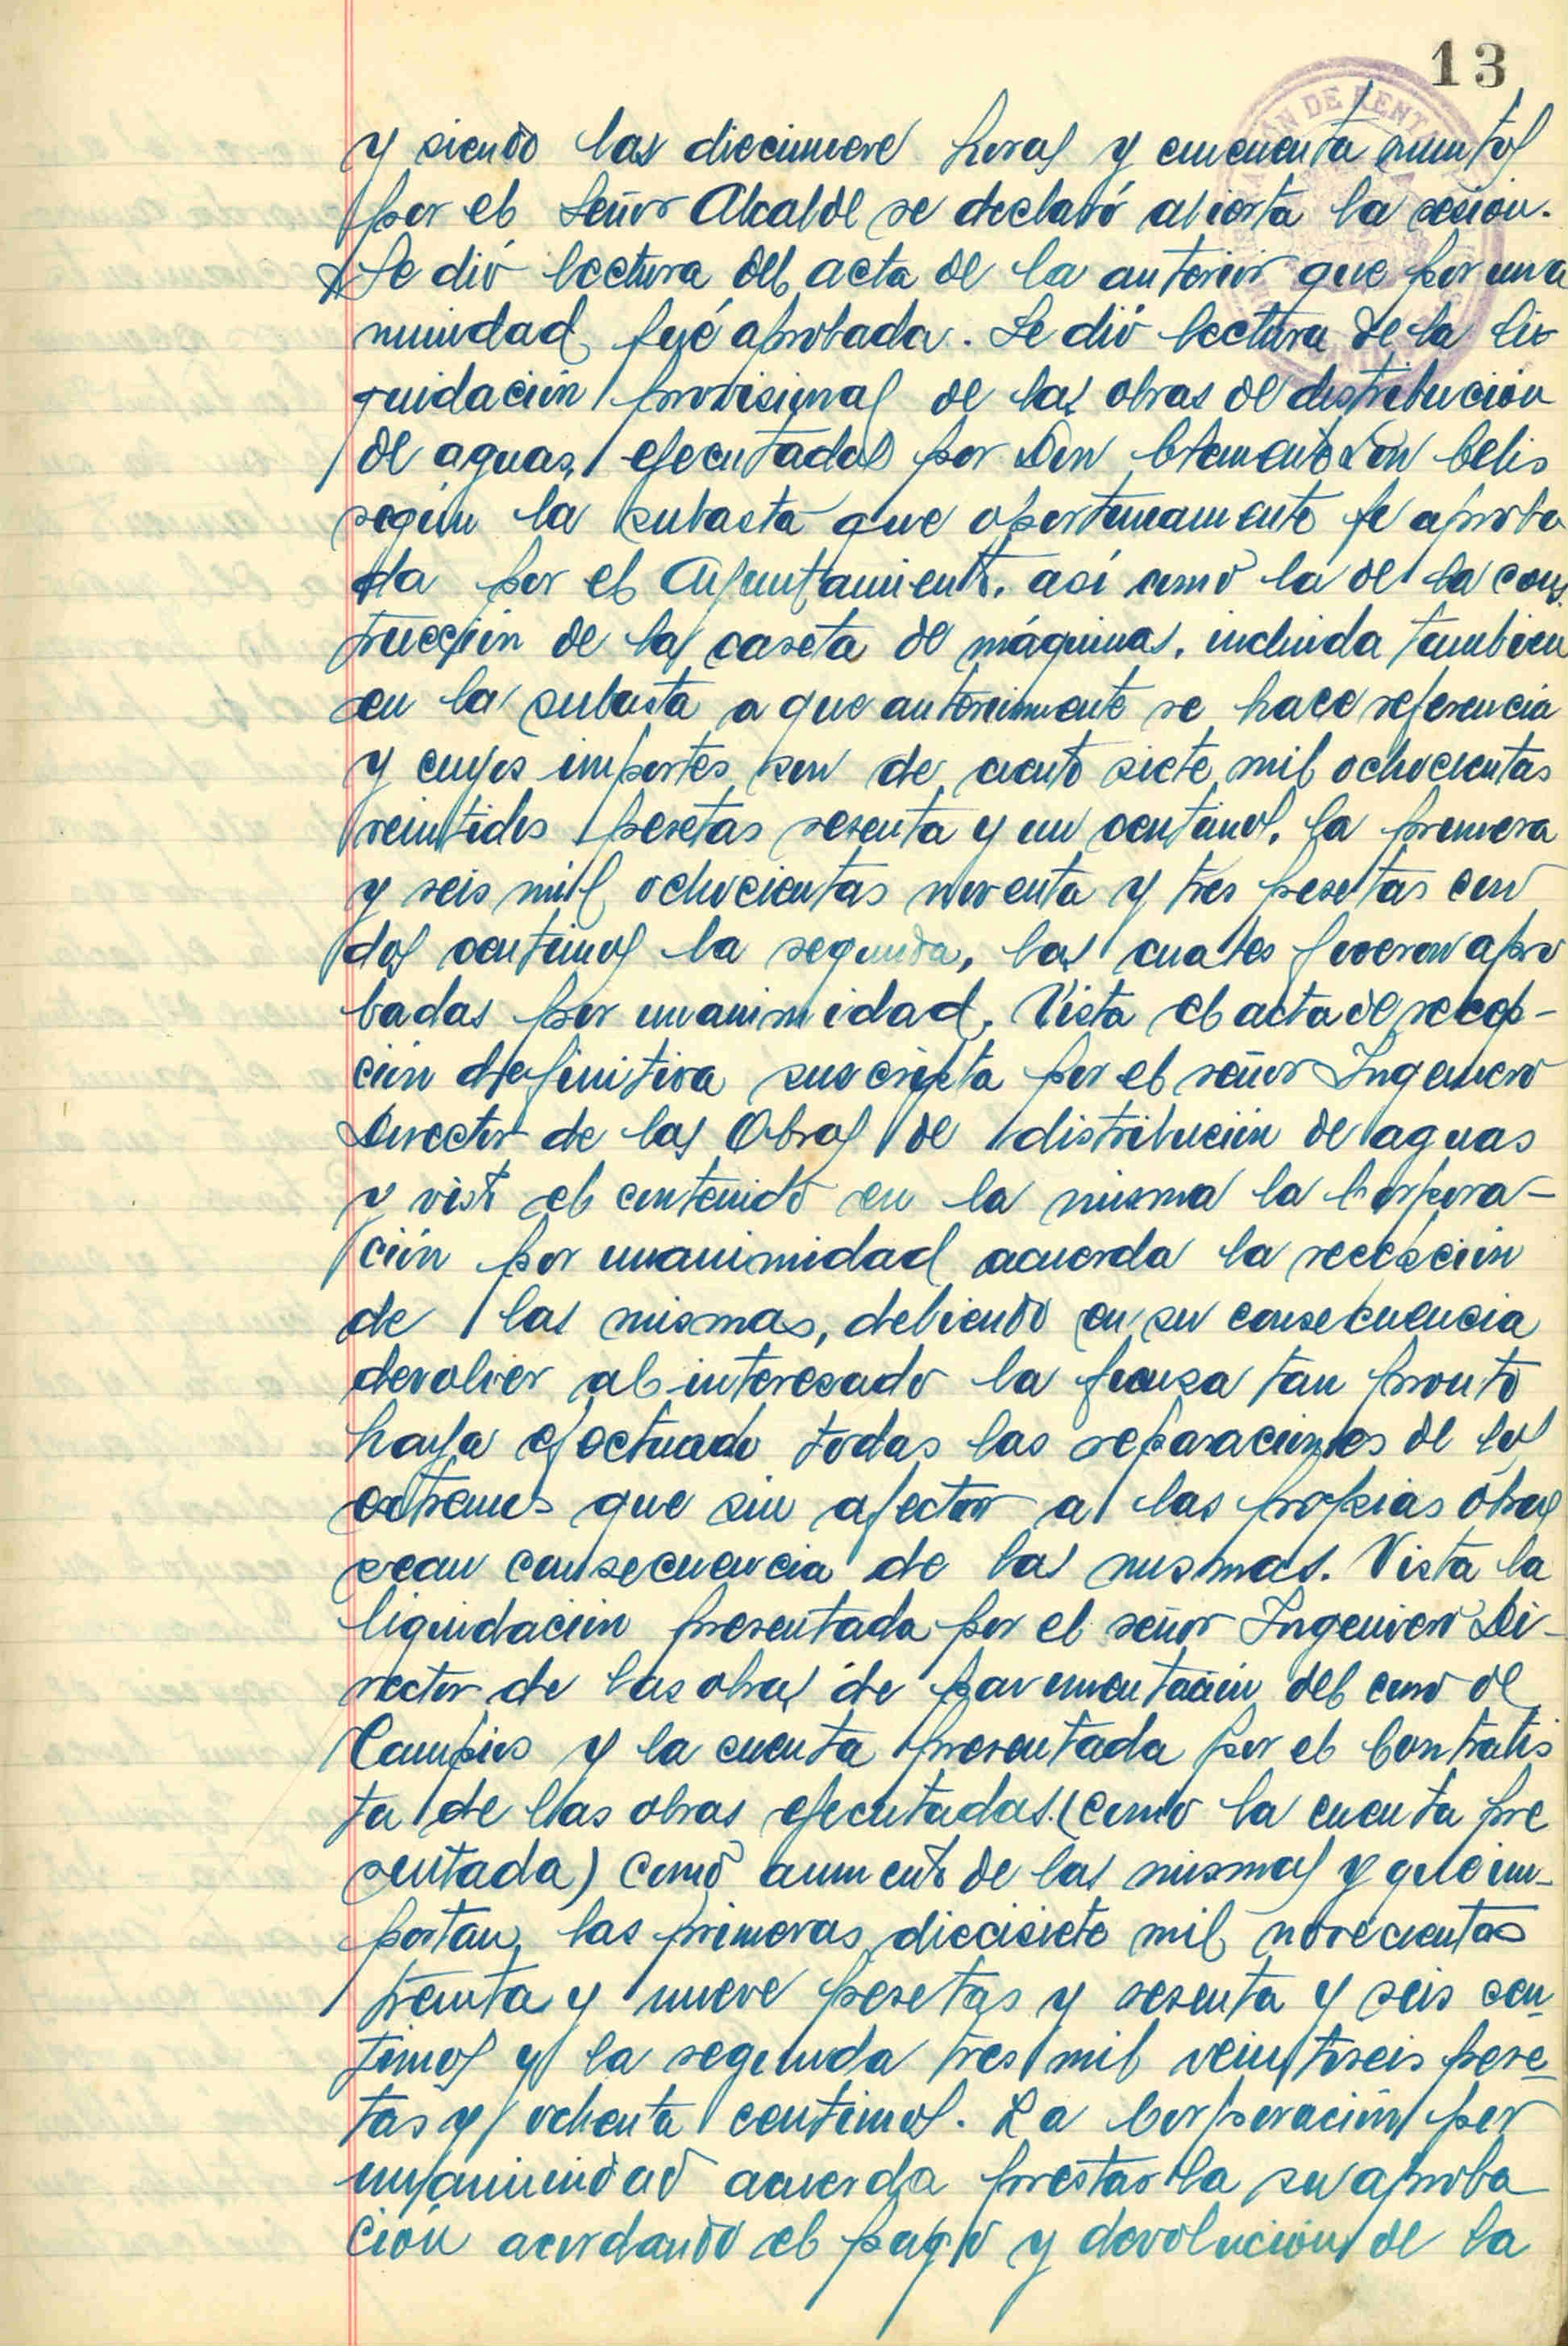 13
y siendo las diecinueve horas y cincuenta minutos
por el Señor Alcalde se declaró abierta la sesion.
Se dió lectura del acta de la anterior que por una
nimidad fué aprobada. Se dió lectura de la li
quidación provisional de las obras de distribución
de aguas, ejecutadas por Don Clemente Celis
según la subasta que oportunamente fe aproba
da por el Ayuntamiento, así como la de la cons
trucción de la caseta de máquinas, incluida tambien
en la subasta a que anteriormente se hace referencia
y cuyos importes son de ciento siete mil ochocientas
veintidos pesetas sesenta y un centimos, la primera
y seis mil ochocientas noventa y tres pesetas con
dos centimos la segunda, las cuales fueron apro
badas por unanimidad. Vista el acta de recep-
ción definitiva suscripta por el señor Ingeniero
Director de las Obras de distribución de aguas
y visto el contenido en la misma la Corpora-
ción por unanimidad acuerda la recepción
de las mismas, debiendo en su consecuencia
devolver al interesado la fianza tan pronto
haya efectuado todas las reparaciones de los
extremos que sin afectar a las propias obras
sean consecuencia de las mismas. Vista la
liquidación presentada por el señor Ingeniero Di-
rector de las obras de pavimentación del de
Campios y la cuenta presentada por el Contratis
ta de las obras ejecutadas (como la cuenta pre
sentada) como aumento de las mismas y que im-
portan, las primeras diecisiete mil novecientas
treinta y nueve pesetas y sesenta y seis cen
timos y la segunda tres mil veintiseis pese
tas y ochenta centimos. La Corporación por
unanimidad acuerda prestarla su aproba
ción acordando el pago y devolución de la